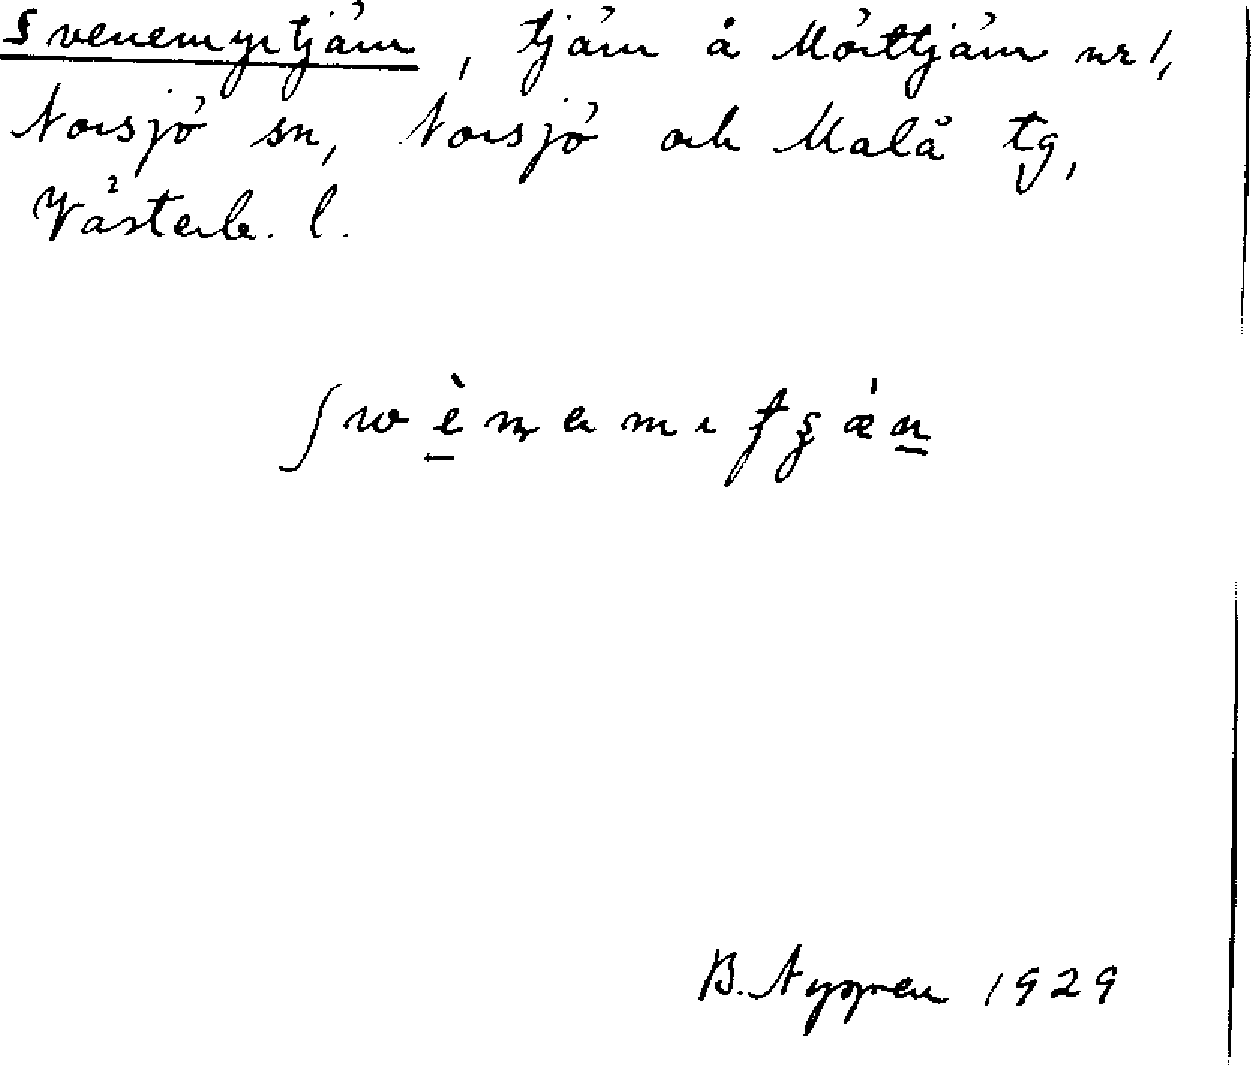 Svenemyrtjärn, tjärn å Mörttjärn nr 1,
Norsjö sn, Norsjö och Malå tg,
Västerb. l.
B. Nygren 1929